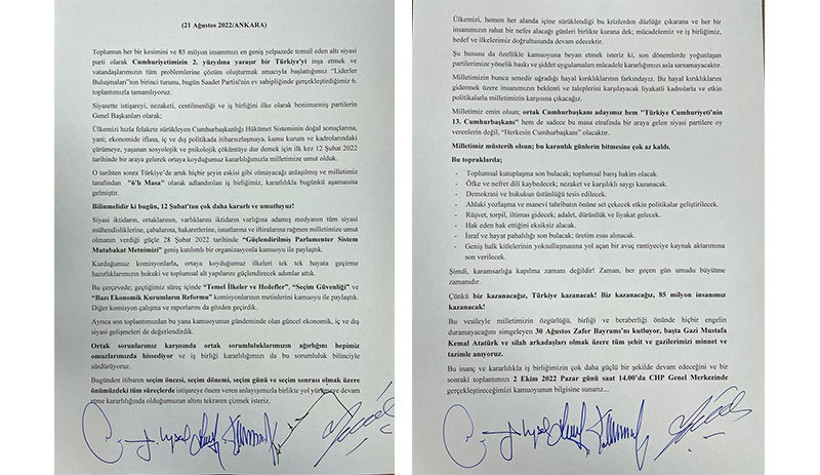 (21 Ağustos 2022/ANKARA)
Toplumun her bir kesimini ve 85 milyon insanımızı en geniş yelpazede temsil eden altı siyasi
parti olarak Cumhuriyetimizin 2. yüzyılına yaraşır bir Türkiye'yi inşa etmek ve
vatandaşlarımızın tüm problemlerine çözüm oluşturmak amacıyla başlattığımız "Liderler
Buluşmaları"nın birinci turunu, bugün Saadet Partisi'nin ev sahipliğinde gerçekleştirdiğimiz 6.
toplantımızla tamamlıyoruz.
Siyasette istişareyi, nezaketi, centilmenliği ve iş birliğini ilke olarak benimsemiş partilerin
Genel Başkanları olarak;
Ülkemizi hızla felakete sürükleyen Cumhurbaşkanlığı Hükümet Sisteminin doğal sonuçlarına,
yani; ekonomide iflasa, iç ve dış politikada itibarsızlaşmaya, kamu kurum ve kadrolarındaki
çürümeye, yaşanan sosyolojik ve psikolojik çöküntüye dur demek için ilk kez 12 Şubat 2022
tarihinde bir araya gelerek ortaya koyduğumuz kararlılığımızla milletimize umut olduk.
O tarihten sonra Türkiye'de artık hiçbir şeyin eskisi gibi olmayacağı anlaşılmış ve milletimiz
tarafından "6'lı Masa" olarak adlandırılan iş birliğimiz, kararlılıkla bugünkü aşamasına
gelmiştir.
Bilinmelidir ki bugün, 12 Şubat'tan çok daha kararlı ve umutluyuz!
Siyasi iktidarın, ortaklarının, varlıklarını iktidarın varlığına adamış medyanın tüm siyasi
mühendisliklerine, çabalarına, hakaretlerine, isnatlarına ve iftiralarına rağmen milletimize umut
olmanın verdiği güçle 28 Şubat 2022 tarihinde "Güçlendirilmiş Parlamenter Sistem
Mutabakat Metnimizi" geniş katılımlı bir organizasyonla kamuoyu ile paylaştık.
Kurduğumuz komisyonlarla, ortaya koyduğumuz ilkeleri tek tek hayata geçirme
hazırlıklarımızın hukuki ve toplumsal alt yapılarını güçlendirecek adımlar attık.
Bu çerçevede; geçtiğimiz süreç içinde "Temel İlkeler ve Hedefler", "Seçim Güvenliği" ve
"Bazı Ekonomik Kurumların Reformu" komisyonlarının metinlerini kamuoyu ile paylaştık.
Diğer komisyon çalışma ve raporlarını da gözden geçirdik.
Ayrıca son toplantımızdan bu yana kamuoyunun gündeminde olan güncel ekonomik, iç ve dış
siyasi gelişmeleri de değerlendirdik.
Ortak sorunlarımız karşısında ortak sorumluluklarımızın ağırlığını hepimiz
omuzlarımızda hissediyor ve iş birliği kararlığımızı da bu sorumluluk bilinciyle
sürdürüyoruz.
Bugünden itibaren seçim öncesi, seçim dönemi, seçim günü ve seçim sonrası olmak üzere
önümüzdeki tüm süreçlerde istişareye önem veren anlayışımızla birlikte yol yürümeye devam
etme kararlılığında olduğumuzun altını tekraren çizmek isteriz.
Ülkemizi, hemen her alanda içine sürüklendiği bu krizlerden düzlüğe çıkarana ve her bir
insanımızın rahat bir nefes alacağı günleri birlikte kurana dek; mücadelemiz ve iş birliğimiz,
hedef ve ilkelerimiz doğrultusunda devam edecektir.
Şu hususu da özellikle kamuoyuna beyan etmek isteriz ki, son dönemlerde yoğunlaşan
partilerimize yönelik baskı ve şiddet uygulamaları mücadele kararlığımızı asla sarsamayacaktır.
Milletimizin bunca senedir uğradığı hayal kırıklıklarının farkındayız. Bu hayal kırıklıklarını
gidermek üzere insanımızın beklenti ve taleplerini karşılayacak liyakatli kadrolarla ve etkin
politikalarla milletimizin karşısına çıkacağız.
Milletimiz emin olsun; ortak Cumhurbaşkanı adayımız hem "Türkiye Cumhuriyeti'nin
13. Cumhurbaşkanı" hem de sadece bu masa etrafında bir araya gelen siyasi partilere oy
verenlerin değil, "Herkesin Cumhurbaşkanı" olacaktır.
Milletimiz müsterih olsun; bu karanlık günlerin bitmesine çok az kaldı.
Bu topraklarda;
- Toplumsal kutuplaşma son bulacak; toplumsal barış hakim olacak.
- Öfke ve nefret dili kaybedecek; nezaket ve karşılıklı saygı kazanacak.
- Demokrasi ve hukukun üstünlüğü tesis edilecek.
- Ahlaki yozlaşma ve manevi tahribatın önüne set çekecek etkin politikalar geliştirilecek.
- Rüşvet, torpil, iltimas gidecek; adalet, dürüstlük ve liyakat gelecek.
- Hak eden hak ettiğini eksiksiz alacak.
- İsraf ve hayat pahalılığı son bulacak; üretim esas alınacak.
- Geniş halk kitlelerinin yoksullaşmasına yol açan bir avuç rantiyeciye kaynak aktarımına
son verilecek.
Şimdi, karamsarlığa kapılma zamanı değildir! Zaman, her geçen gün umudu büyütme
zamanıdır.
Çünkü biz kazanacağız, Türkiye kazanacak! Biz kazanacağız, 85 milyon insanımız
kazanacak!
Bu vesileyle milletimizin özgürlüğü, birliği ve beraberliği önünde hiçbir engelin
duramayacağını simgeleyen 30 Ağustos Zafer Bayramı'nı kutluyor, başta Gazi Mustafa
Kemal Atatürk ve silah arkadaşları olmak üzere tüm şehit ve gazilerimizi minnet ve
tazimle anıyoruz.
Bu inanç ve kararlılıkla iş birliğimizin çok daha güçlü bir şekilde devam edeceğini ve bir
sonraki toplantımızı 2 Ekim 2022 Pazar günü saat 14.00'da CHP Genel Merkezinde
gerçekleştireceğimizi kamuoyunun bilgisine sunarız...